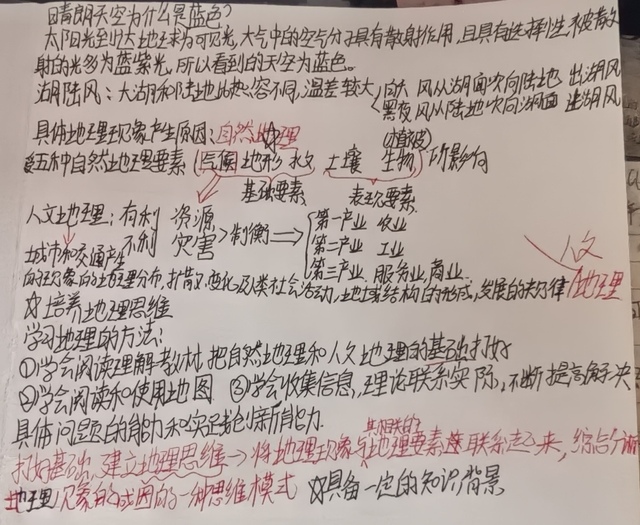 日晴朗天空为什么是蓝色?
太阳光到达地球为可见光,大气中的空气分子具有散射作用,且具有选择性,被散
射的光多为蓝紫光,所以看到的天空为蓝色。
湖陆风:大湖和陆地比热容不同,温差较大 白天 风从湖面吹向陆地 出湖风
黑夜 风从陆地吹向湖面 进湖风
具体地理现象产生原因:自然地理
受五种自然地理要素(气候 地形 水文 土壤 生物(植被))的影响
基础要素 表现要素
人文地理:有利 资源 制衡 第一产业 农业
不利 灾害 第二产业 工业
第三产业 服务业,商业
人文地理
城市和交通产生
的现象的地理分布,扩散,变化及人类社会活动,地域结构的形成,发展的规律
培养地理思维
学习地理的方法:
①学会阅读理解教材,把自然地理和人文地理的基础打好
②学会阅读和使用地图 ③学会收集信息,理论联系实际,不断提高解决
具体问题的能力和实践创新能力.
打好基础,建立地理思维→将地理现象与其相关的地理要素联系起来,综合分析
地理现象的成因的一种思维模式 具备一定的知识背景